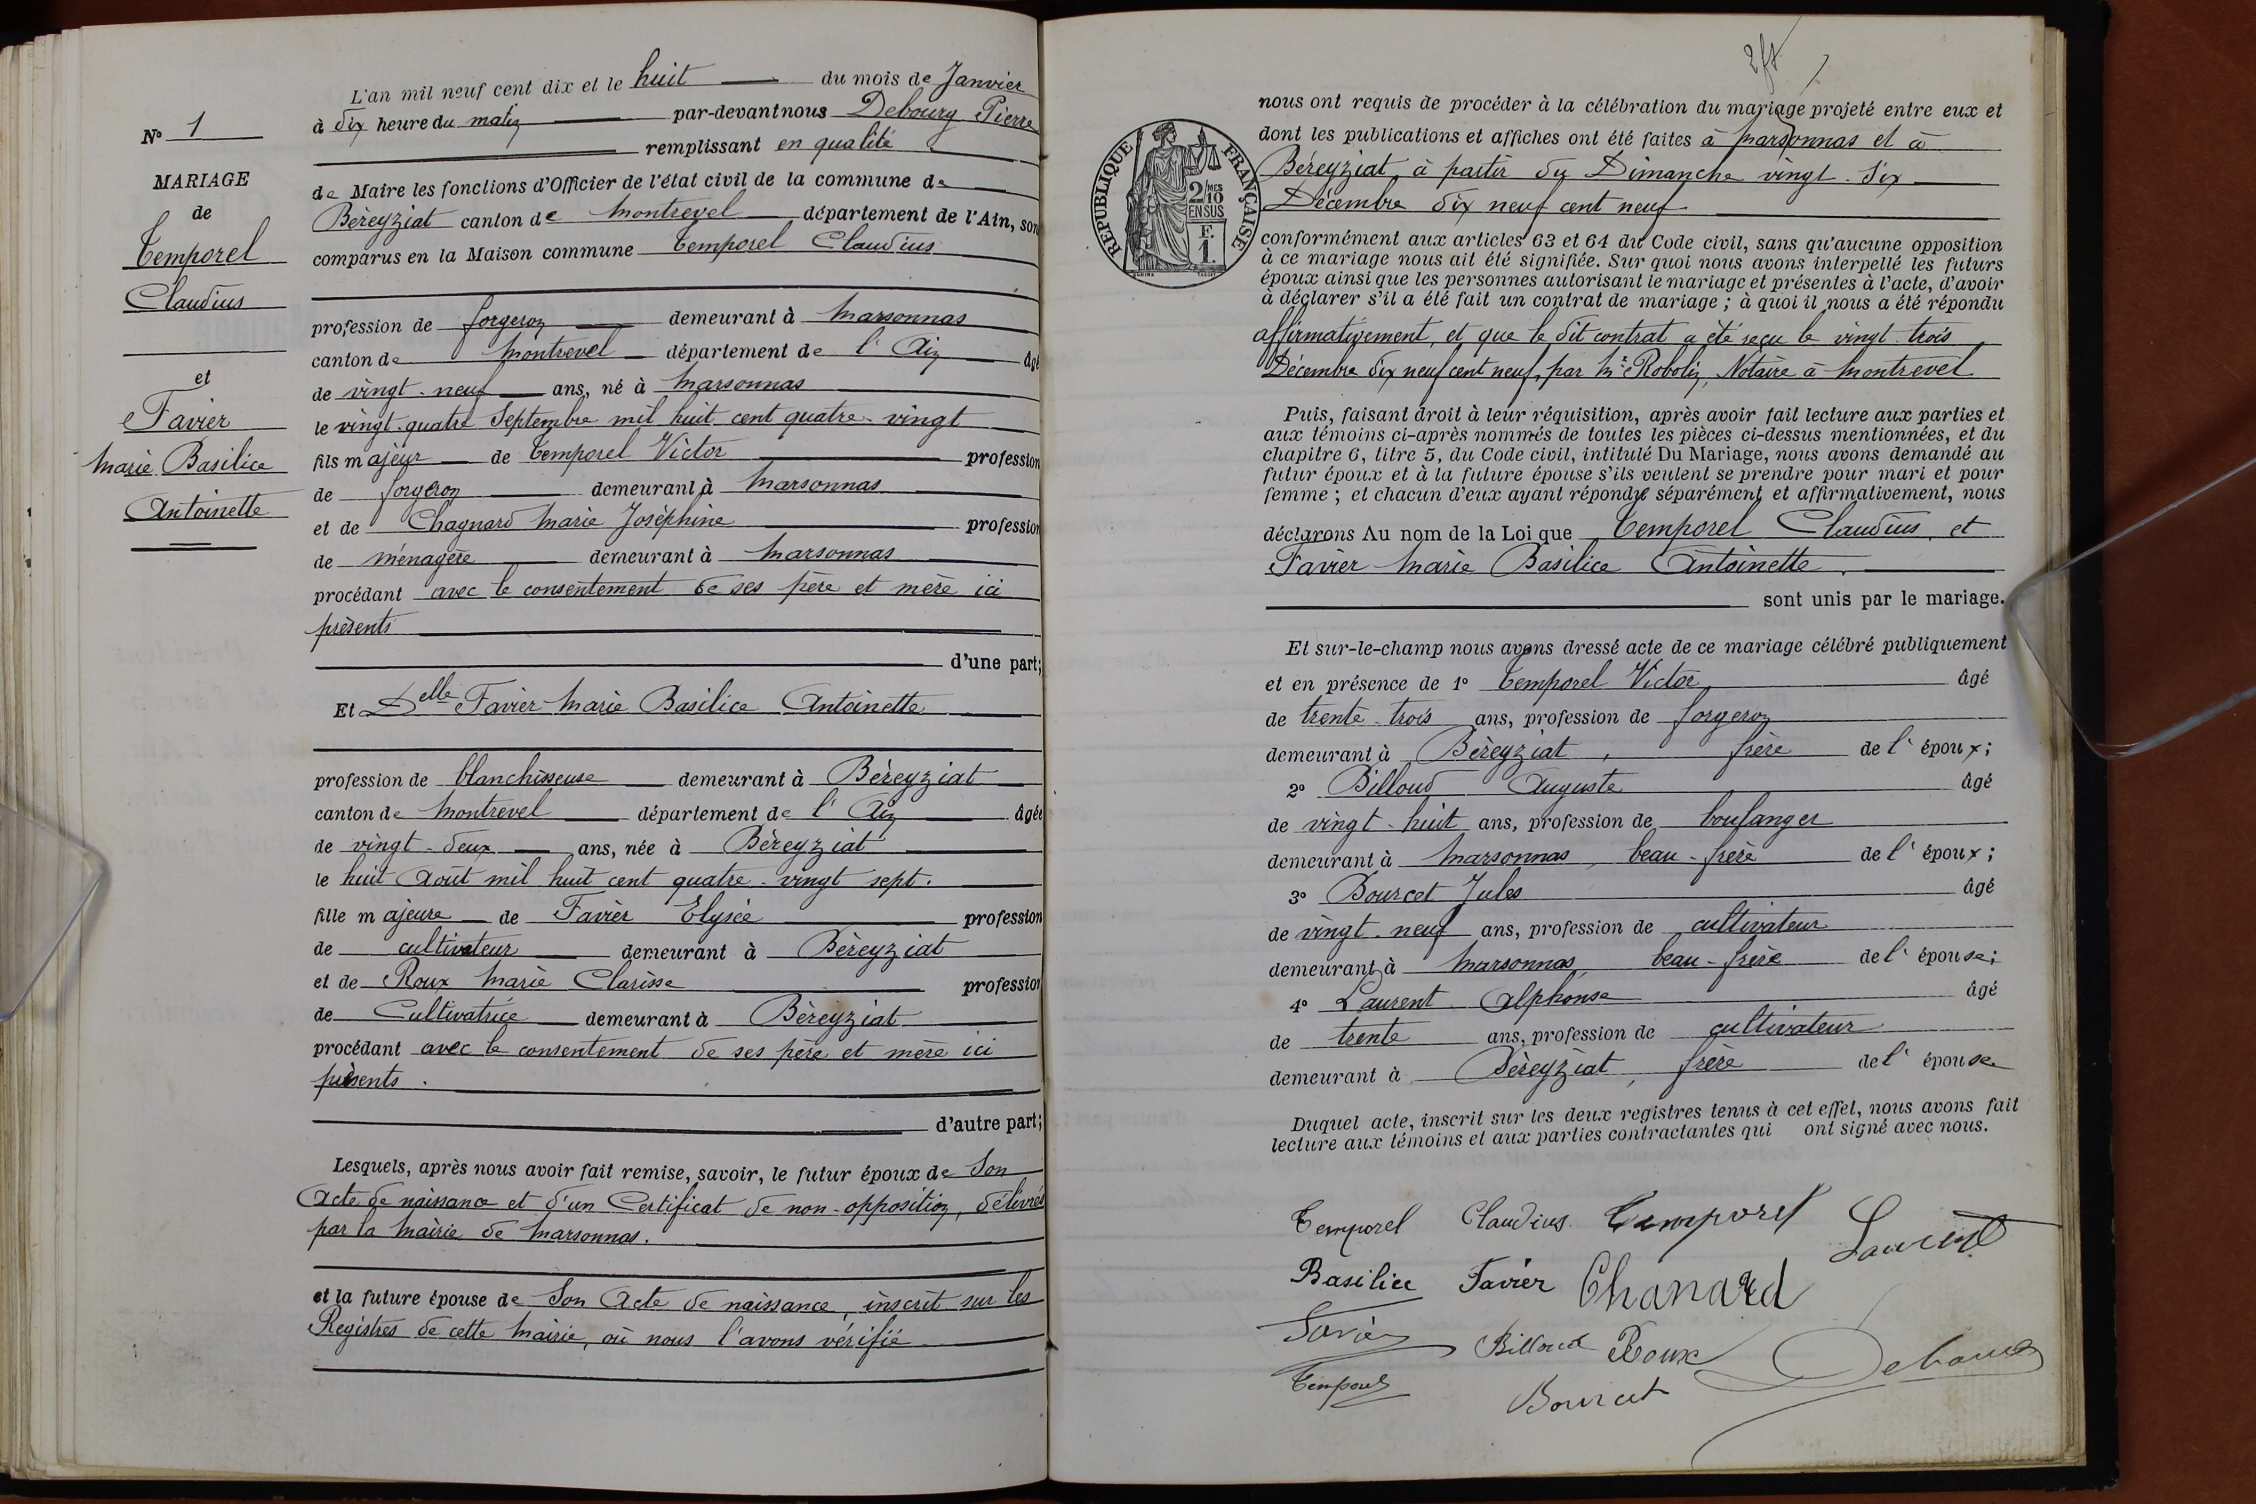 L'an mil neuf cent dix et le huit du mois de Janvier
à dix heure du matin par-devant nous Debourg Pierre
remplissant en qualité
de Maire les fonctions d'Officier de l'état civil de la commune de
Béreyziat canton de Montrevel département de l'Ain, son
comparus en la Maison commune Temporel Claudius
profession de forgeron demeurant à Marsonnas
canton de Montrevel département de l'Ain âgé
de vingt-neuf ans, né à Marsonnas
le vingt-quatre Septembre mil huit cent quatre-vingt
fils majeur de Temporel Victor profession
de forgeron demeurant à Marsonnas
et de Chagnard Marie Joséphine profession
de ménagère demeurant à Marsonnas
procédant avec le consentement de ses père et mère ici
présents
d'une part;
Et Delle Favier Marie Basilice Antoinette
profession de blanchisseuse demeurant à Béreyziat
canton de Montrevel département de l'Ain âgée
de vingt-deux ans, née à Béreyziat
le huit Août mil huit cent quatre-vingt sept.
fille majeure de Favier Elysée profession
de cultivateur demeurant à Béreyziat
et de Roux Marie Clarisse profession
de Cultivatrice demeurant à Béreyziat
procédant avec le consentement de ses père et mère ici
présents.
d'autre part;
Lesquels, après nous avoir fait remise, savoir, le futur époux de Son
Acte de naissance et d'un Certificat de non-opposition, délivrés
par la Mairie de Marsonnas.
et la future épouse de Son Acte de naissance, inscrit sur les
Registres de cette Mairie, où nous l'avons vérifié
N° 1
MARIAGE
de
Temporel
Claudius
et
Favier
Marie Basilice
Antoinette
RÉPUBLIQUE FRANÇAISE
2/MES
10
EN SUS
F.
1.
nous ont requis de procéder à la célébration du mariage projeté entre eux et
dont les publications et affiches ont été faites à Marsonnas et à
Béreyziat à partir du Dimanche vingt-six
Décembre dix neuf cent neuf
conformément aux articles 63 et 64 du Code civil, sans qu'aucune opposition
à ce mariage nous ait été signifiée. Sur quoi nous avons interpellé les futurs
époux ainsi que les personnes autorisant le mariage et présentes à l'acte, d'avoir
à déclarer s'il a été fait un contrat de mariage; à quoi il nous a été répondu
affirmativement, et que le dit contrat a été reçu le vingt-trois
Décembre dix neuf cent neuf, par Me Robolin, Notaire à Montrevel
Puis, faisant droit à leur réquisition, après avoir fait lecture aux parties et
aux témoins ci-après nommés de toutes les pièces ci-dessus mentionnées, et du
chapitre 6, titre 5, du Code civil, intitulé Du Mariage, nous avons demandé au
futur époux et à la future épouse s'ils veulent se prendre pour mari et pour
femme; et chacun d'eux ayant répondu séparément et affirmativement, nous
déclarons Au nom de la Loi que Temporel Claudius, et
Favier Marie Basilice Antoinette.
sont unis par le mariage.
Et sur-le-champ nous avons dressé acte de ce mariage célébré publiquement
et en présence de 1° Temporel Victor âgé
de trente-trois ans, profession de forgeron
demeurant à Béreyziat, frère de l'époux;
2° Billoud Auguste âgé
de vingt-huit ans, profession de boulanger
demeurant à Marsonnas, beau-frère de l'époux;
3° Bourcet Jules âgé
de vingt-neuf ans, profession de cultivateur
demeurant à Marsonnas, beau-frère de l'épouse;
4° Laurent Alphonse âgé
de trente ans, profession de cultivateur
demeurant à Béreyziat, frère de l'épouse
Duquel acte, inscrit sur les deux registres tenus à cet effet, nous avons fait
lecture aux témoins et aux parties contractantes qui ont signé avec nous.
Temporel Claudius. Temporel Laurent
Basilice Favier Chanard
Favier Billoud Roux Debourg
Temporel Bourcet